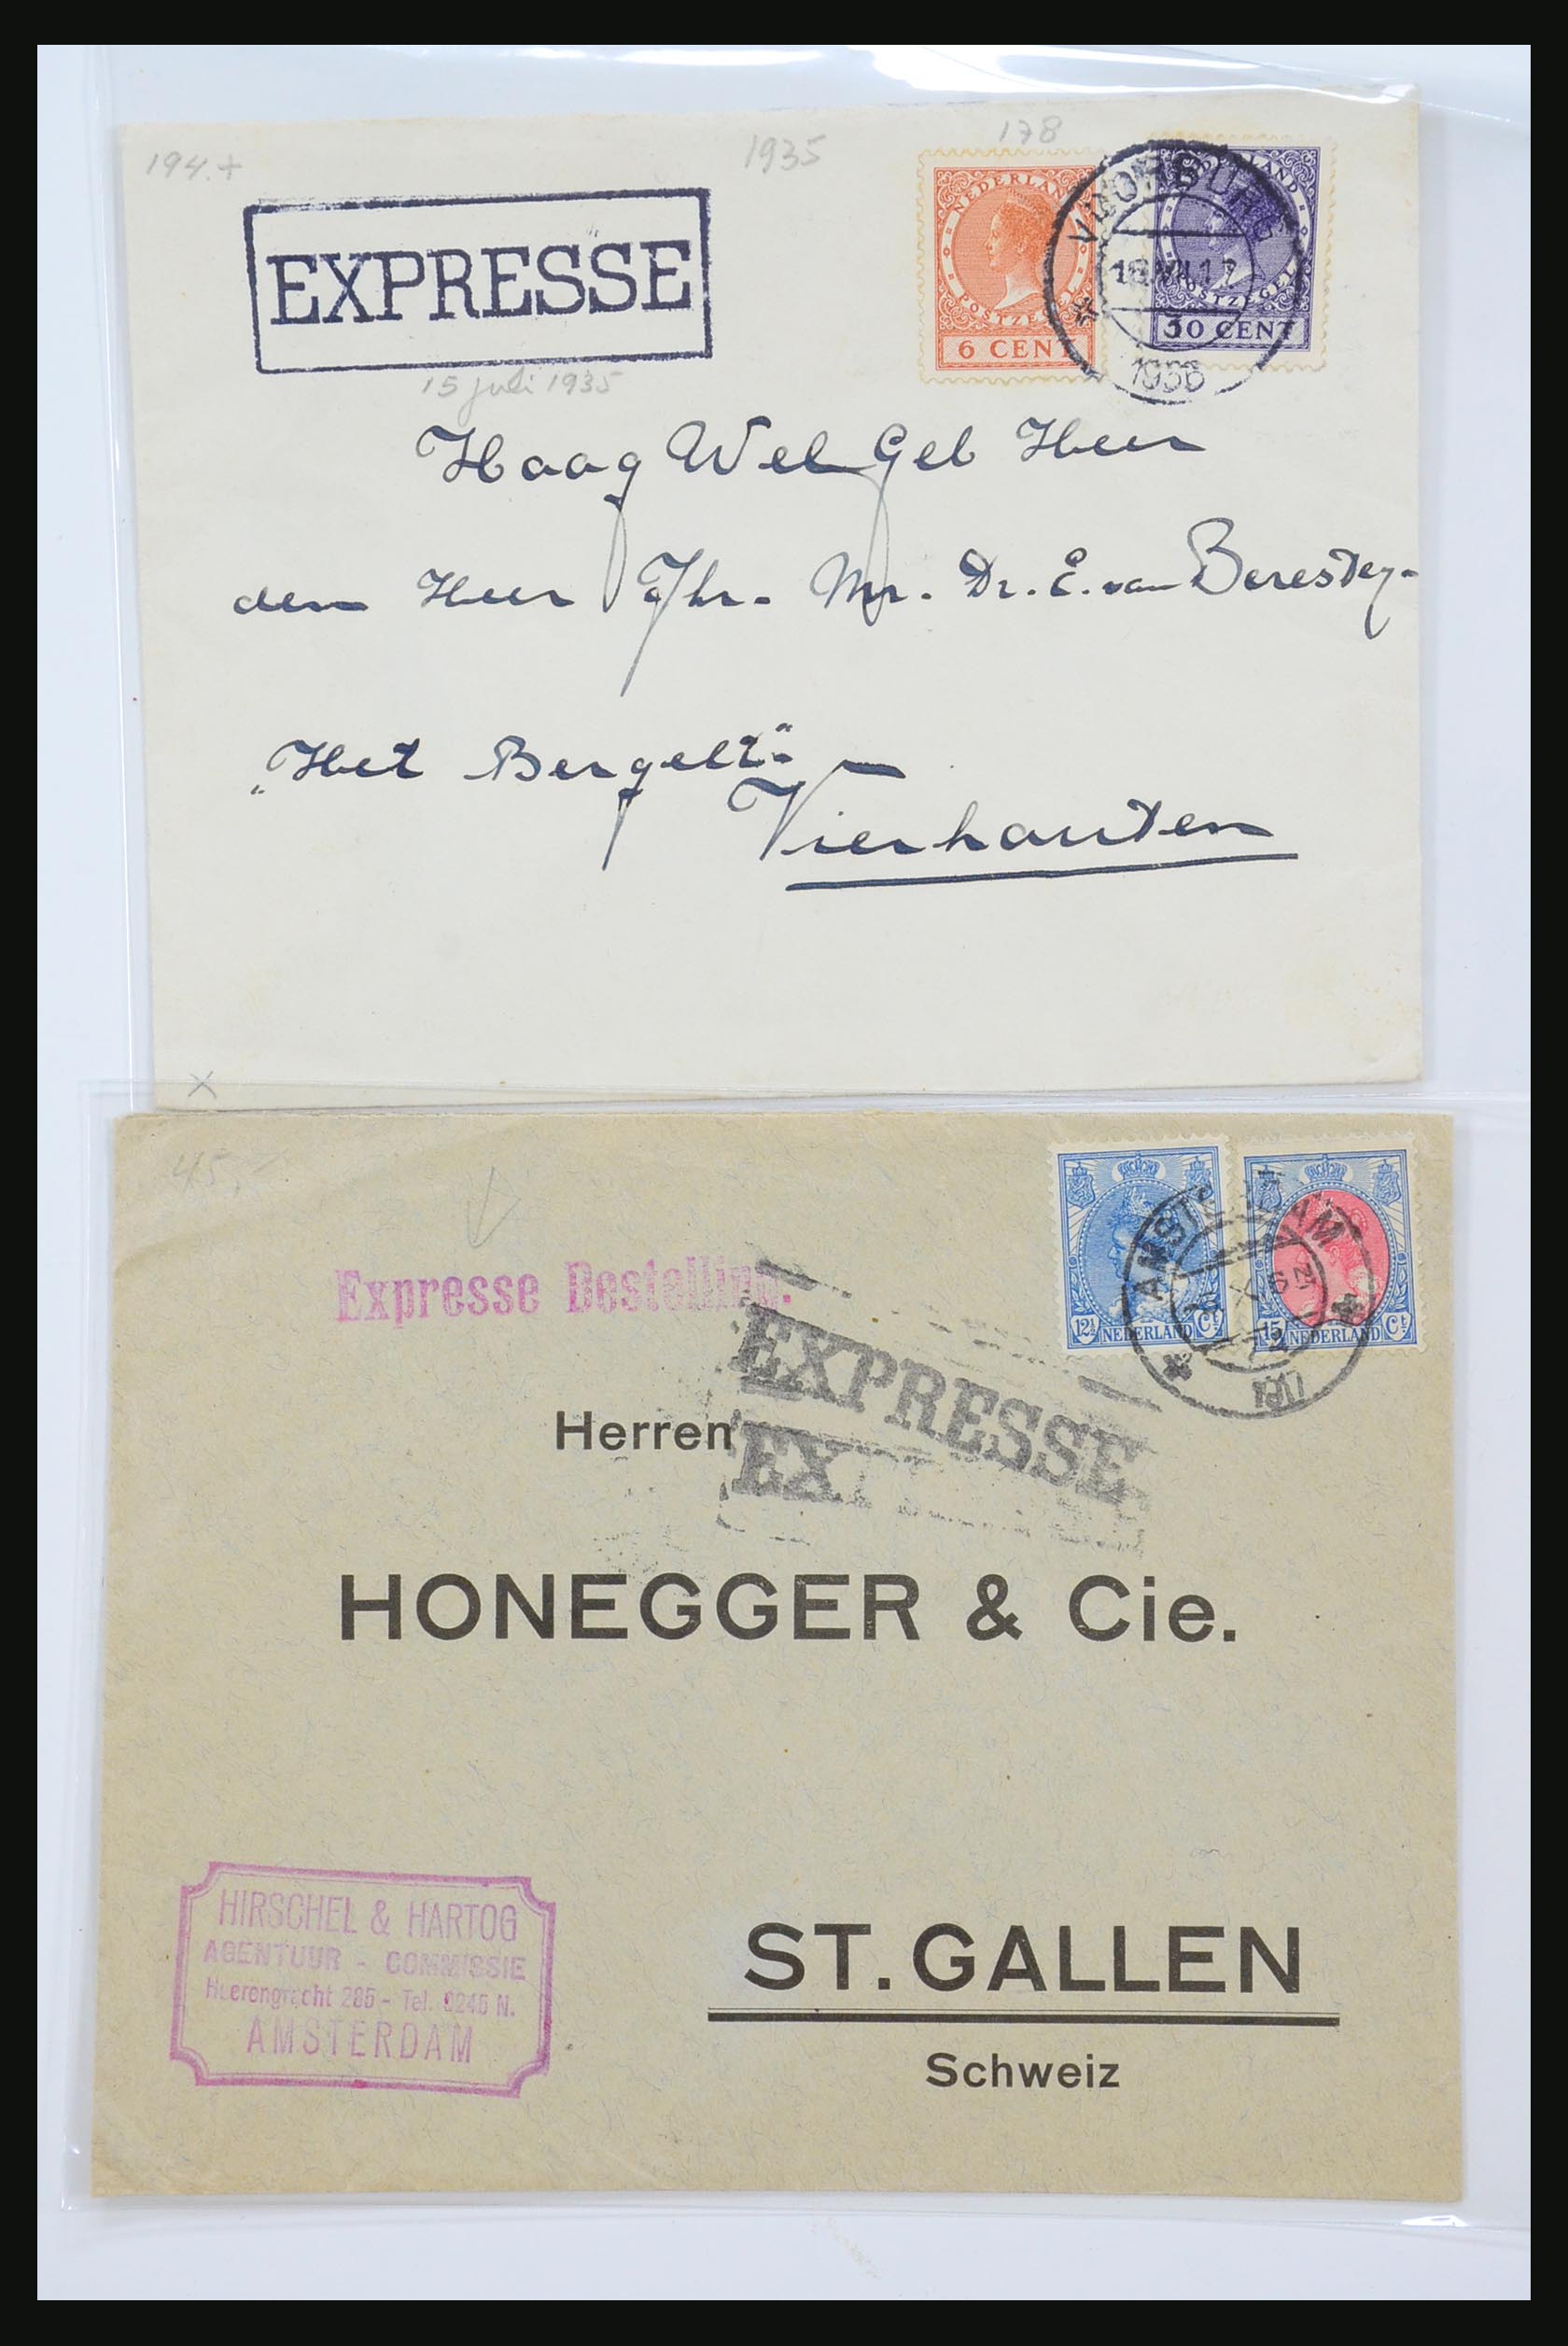 194.+
1935
178
EXPRESSE
15 juli 1935
NEDERLAND
POSTZEGEL
6 CENT
NEDERLAND
POSTZEGEL
30 CENT
VOORBURG
1936
Hoog Wel Geb Heer
den Heer Jhr. Mr. Dr. E. van Beresteyn
„Het Bergelt"
Vierhouten
x
45,-
Expresse Bestelling.
12½ NEDERLAND Ct
15 NEDERLAND Ct
AMSTERDAM
EXPRESSE
EX
Herren
HONEGGER & Cie.
HIRSCHEL & HARTOG
AGENTUUR - COMMISSIE
Heerengracht 285 - Tel. 6245 N.
AMSTERDAM
ST. GALLEN
Schweiz